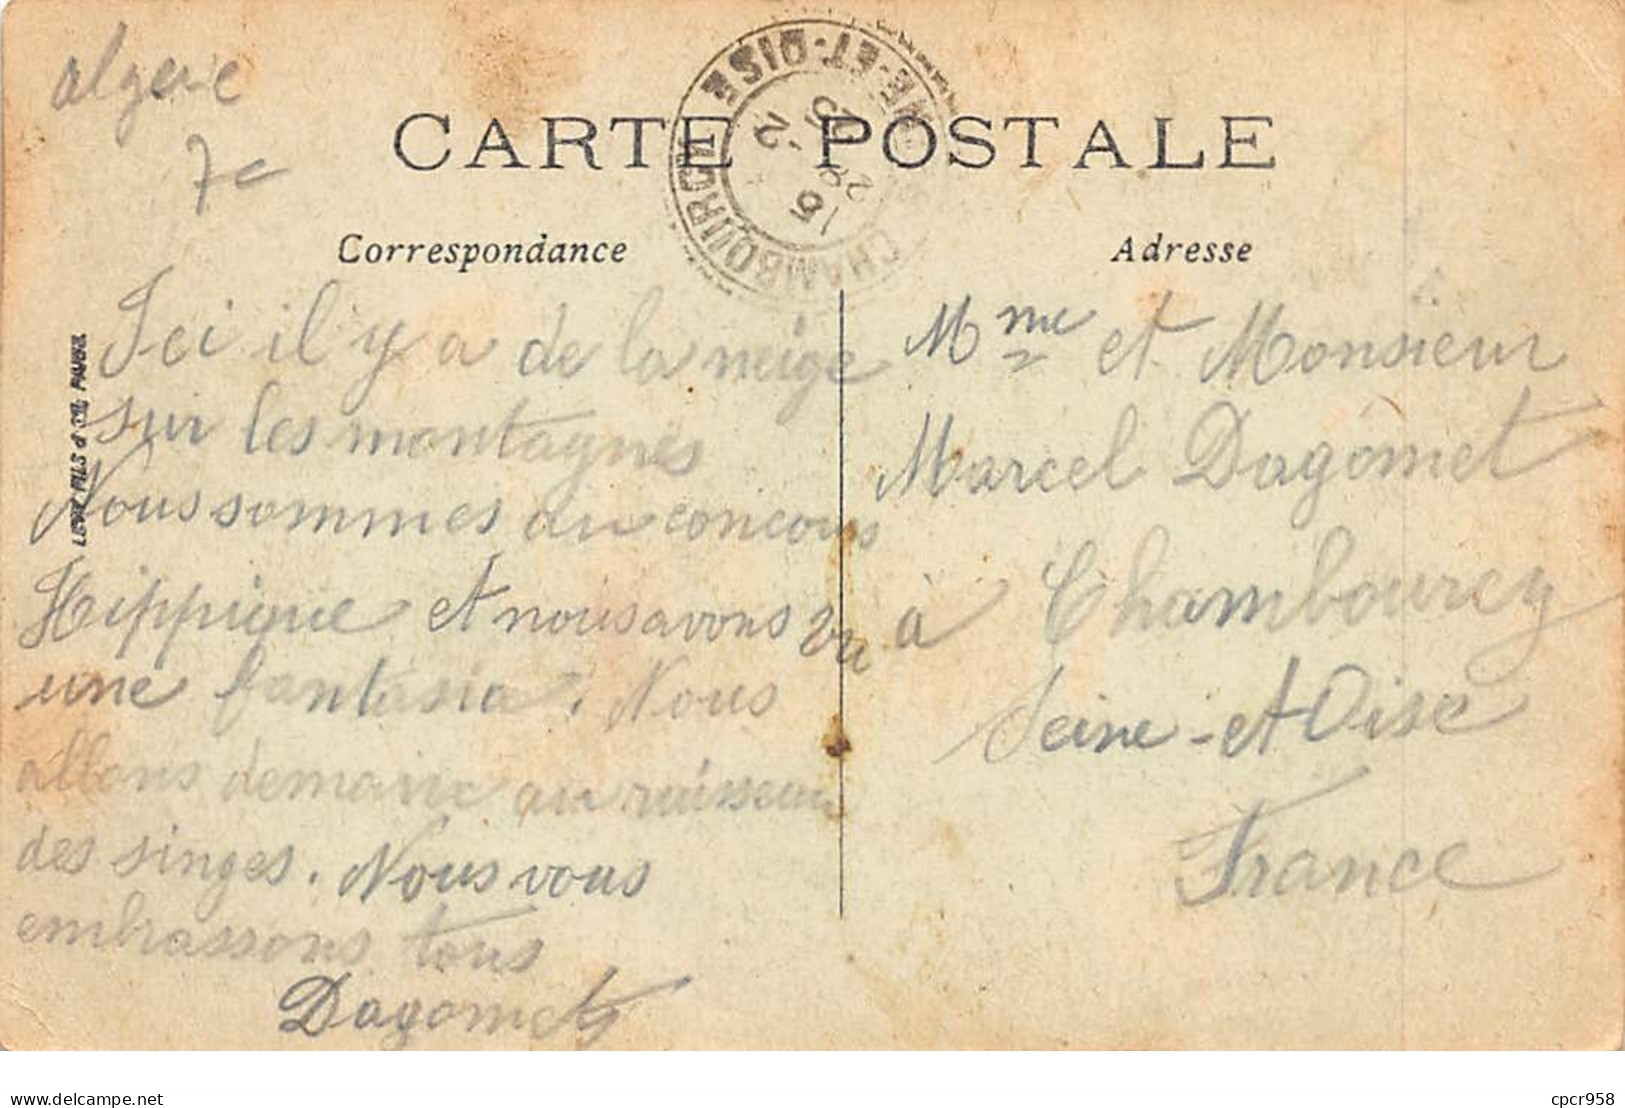 algerie
7c
CARTE POSTALE
CHAMBOURCY
SEINE-ET-OISE
15
Correspondance
Adresse
LEVY FILS & CIE, PARIS
Ici il y a de la neige
sur les montagnes
Nous sommes au concours
Hippique et nous avons vu
une fantasia. Nous
allons demain au ruisseau
des singes. Nous vous
embrassons tous
Dagomet
Mme et Monsieur
Marcel Dagomet
à Chambourcy
Seine-et Oise
France
delcampe.net
cpcr958